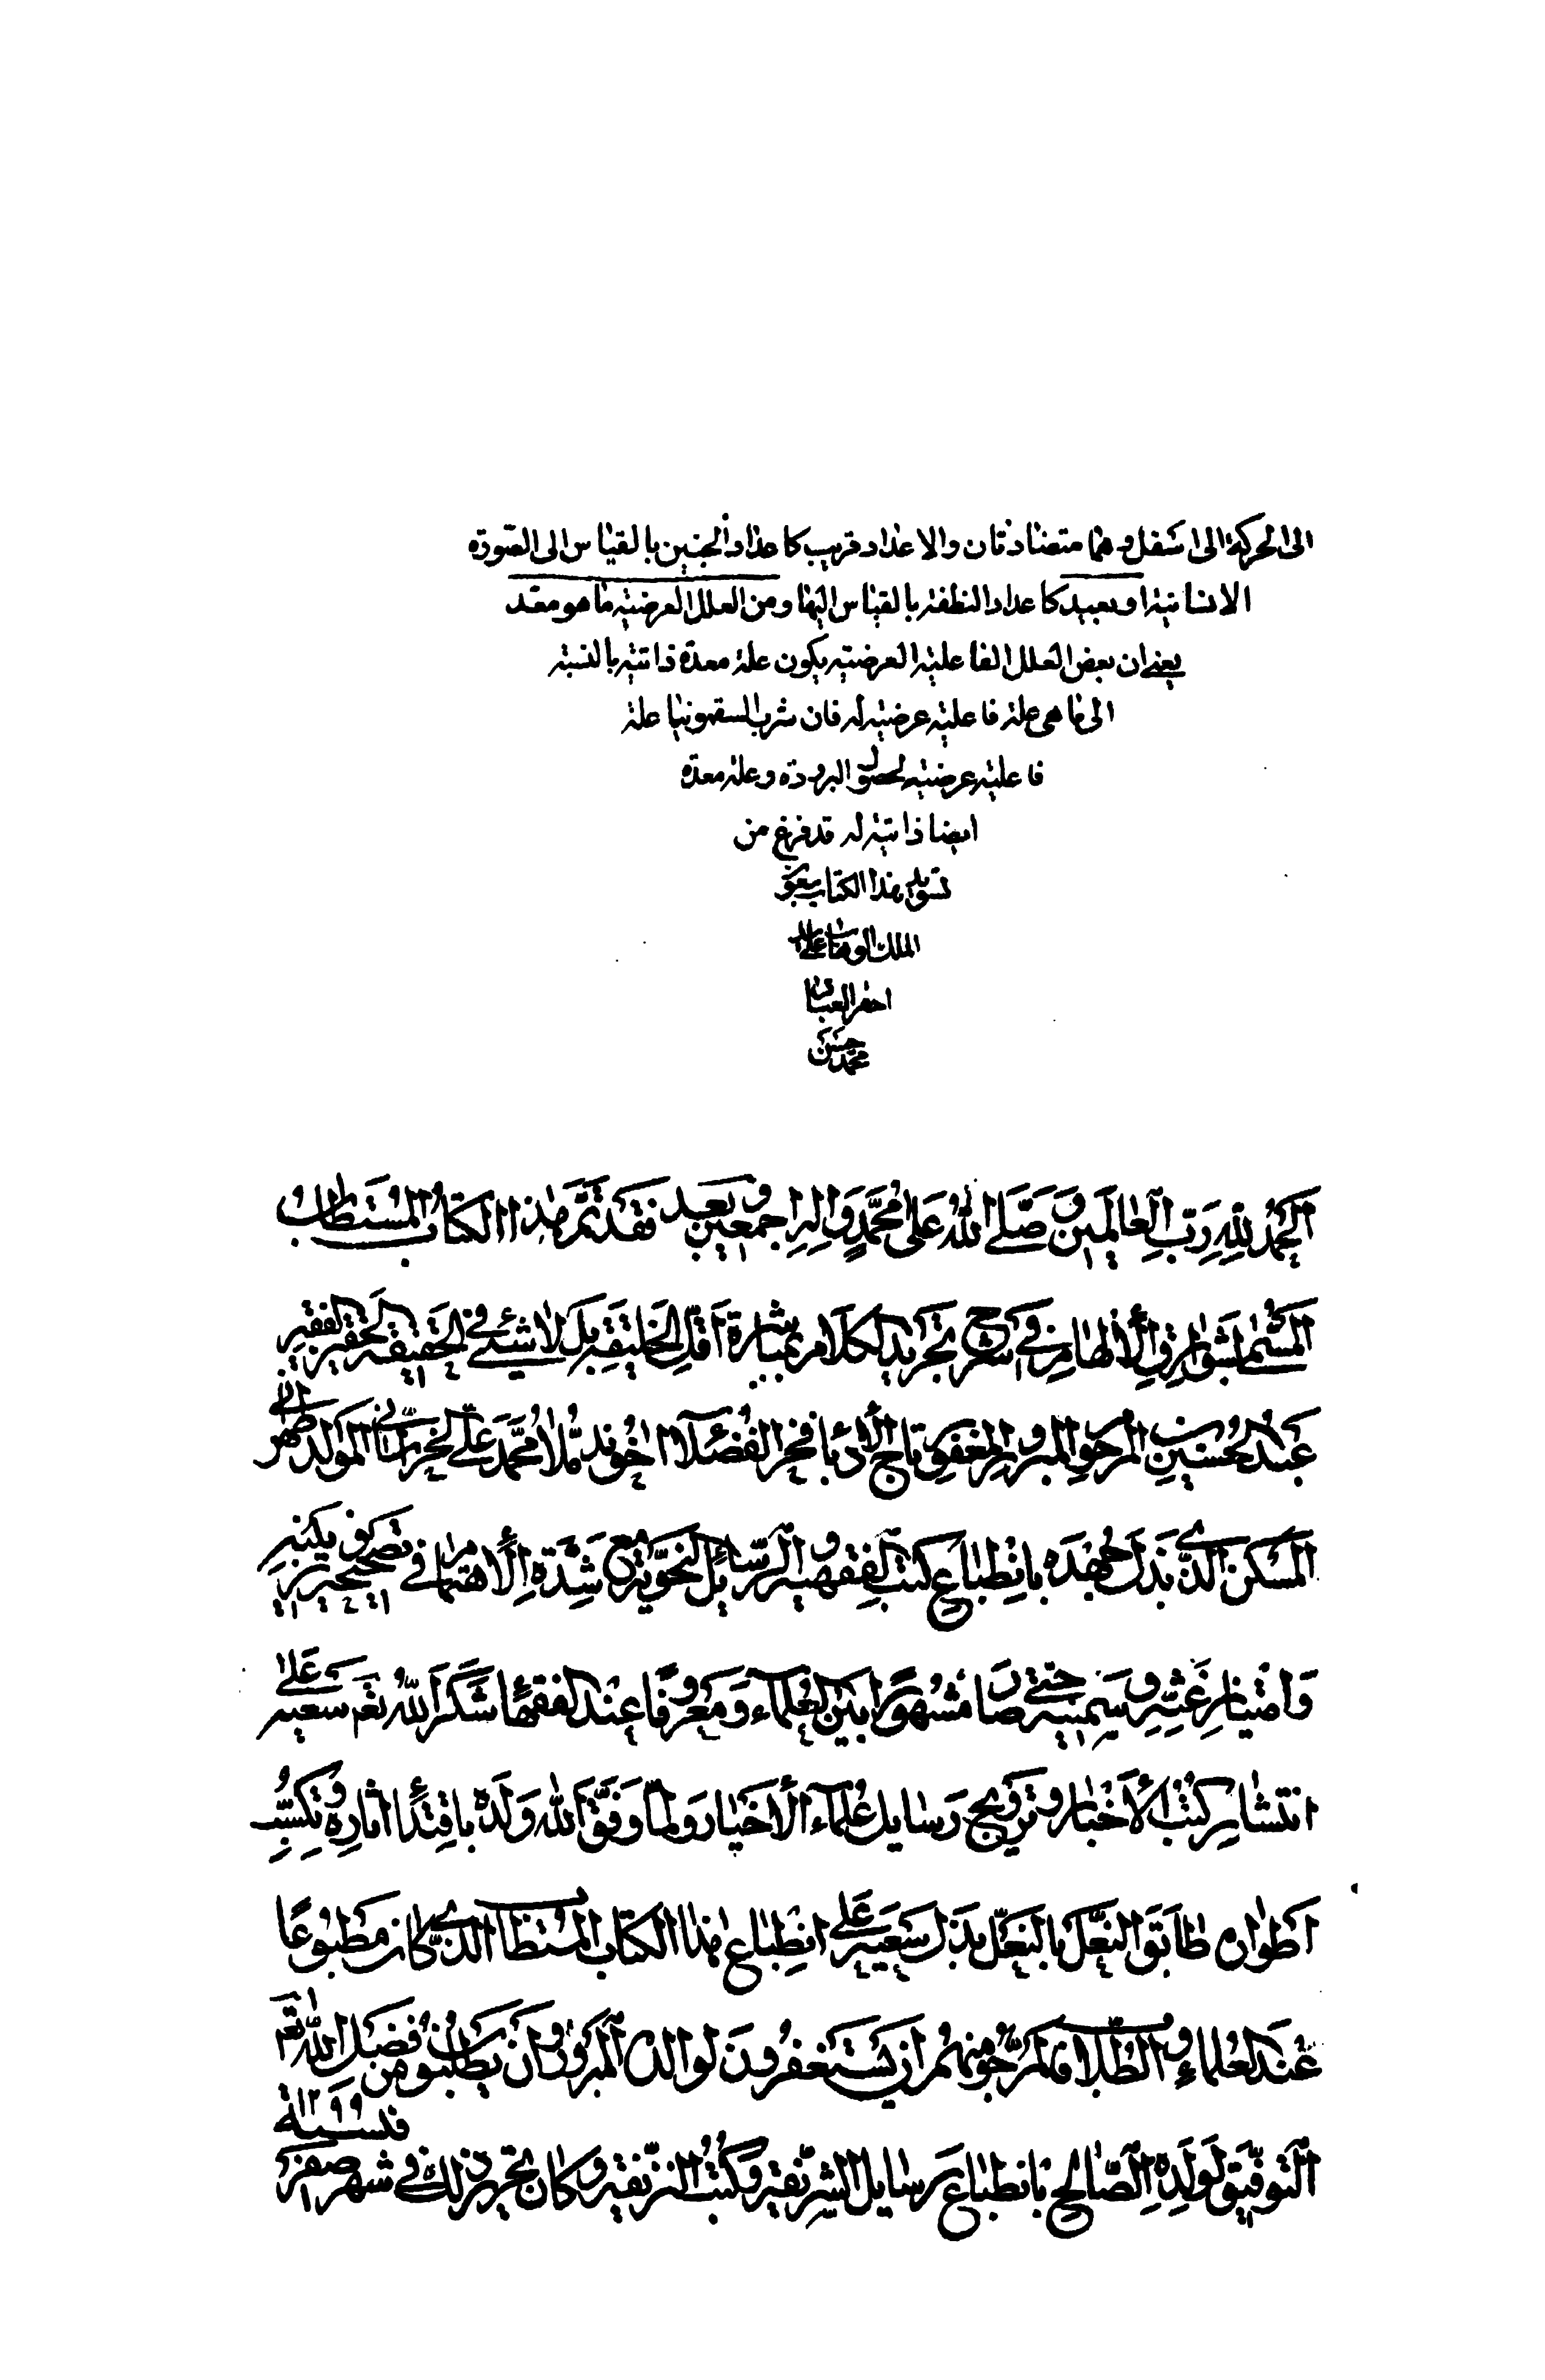 الى الحركة الى اسفل وهما متضادتان والاعداد قريب كاعداد الجنين بالقياس الى الصورة
الانسانية او بعيد كاعداد النطفة بالقياس اليها ومن العلل العرضية ما هو معد
يعنى ان بعض العلل الفاعلية العرضية يكون علة معدة ذاتية بالنسبة
الى ما هى علة فاعلية عرضية له فان شرب السقمونيا علة
فاعلية عرضية لحصول البرودة وعلة معدة
ايضا ذاتية له قد فرغ من
تسويد هذا الكتاب بعون
الملك الوهاب على يد
احقر العباد
محمد حسن
اَلحَمْدُ لِلّهِ رَبِّ العٰالَمينَ وَصَلَّى اللّهُ عَلى مُحَمَّدٍ وَالِهِ اجمعين وبعد فَقَد تَمَّ هٰذا الكتٰابُ المُستَطابُ
المُسَمّى بشَوارِقِ الأِلهامِ في شرح تجريد الكَلام بمباشرة اَقَلِّ الخَليقَةِ بَل لاشيئى في الحَقيقة الحقير الفقيرِ
عَبدُ الحُسَين بن المَرحوم المَبرور المَغفور تاج الأُدَبا فخر الفُضَلاء اخُوند مُلّا مُحَمَّد عَلى الخُراسانى المَولد طهرانى
المَسكن الَّذى بَذَلَ جُهدَه بانِطِباعِ كتب الفِقهيه وَالرَّسائل النَحوّية مع شِدّة الأِهتمام في تصحيح
وَامتيازِ غَثِّه وسَمينه حتّى صَار مشهورًا بَين العُلماء وَ مَعروفًا عِندَ الفقهٓاء شَكَرَ اللّهُ تعم سَعيه عَلى
انتشار كُتُب الأَخبار وترويج رَسايل عُلمآء الأَخيار وَلمّا وَفَّقَ اَللّه وَلَدَه باقتِدٓاء اثارِه وتكسّبِ
اَطوارِه طابَقَ النَّعلَ بالنَعلِ بَذَل سَعيَه عَلى انِطباع هٰذا الكتاب المُستطاب الَّذى كان مَطبُوعًا
عِندَ العُلماءِ وَ الطُّلّاب فالمَرجُو مِنهُم ان يَستَغفرونَ لوالده المَبرُور وَأن يَطلُبُو من فَضل اللّه تعم
فى سنة ١٢٩٩
التَوفيق لوَلَدِهِ الصّالحِ بانطباع رسايل الشَريفةِ وَكُتُب النَّزيفة وكان تحرير ذلك في شهر صفر